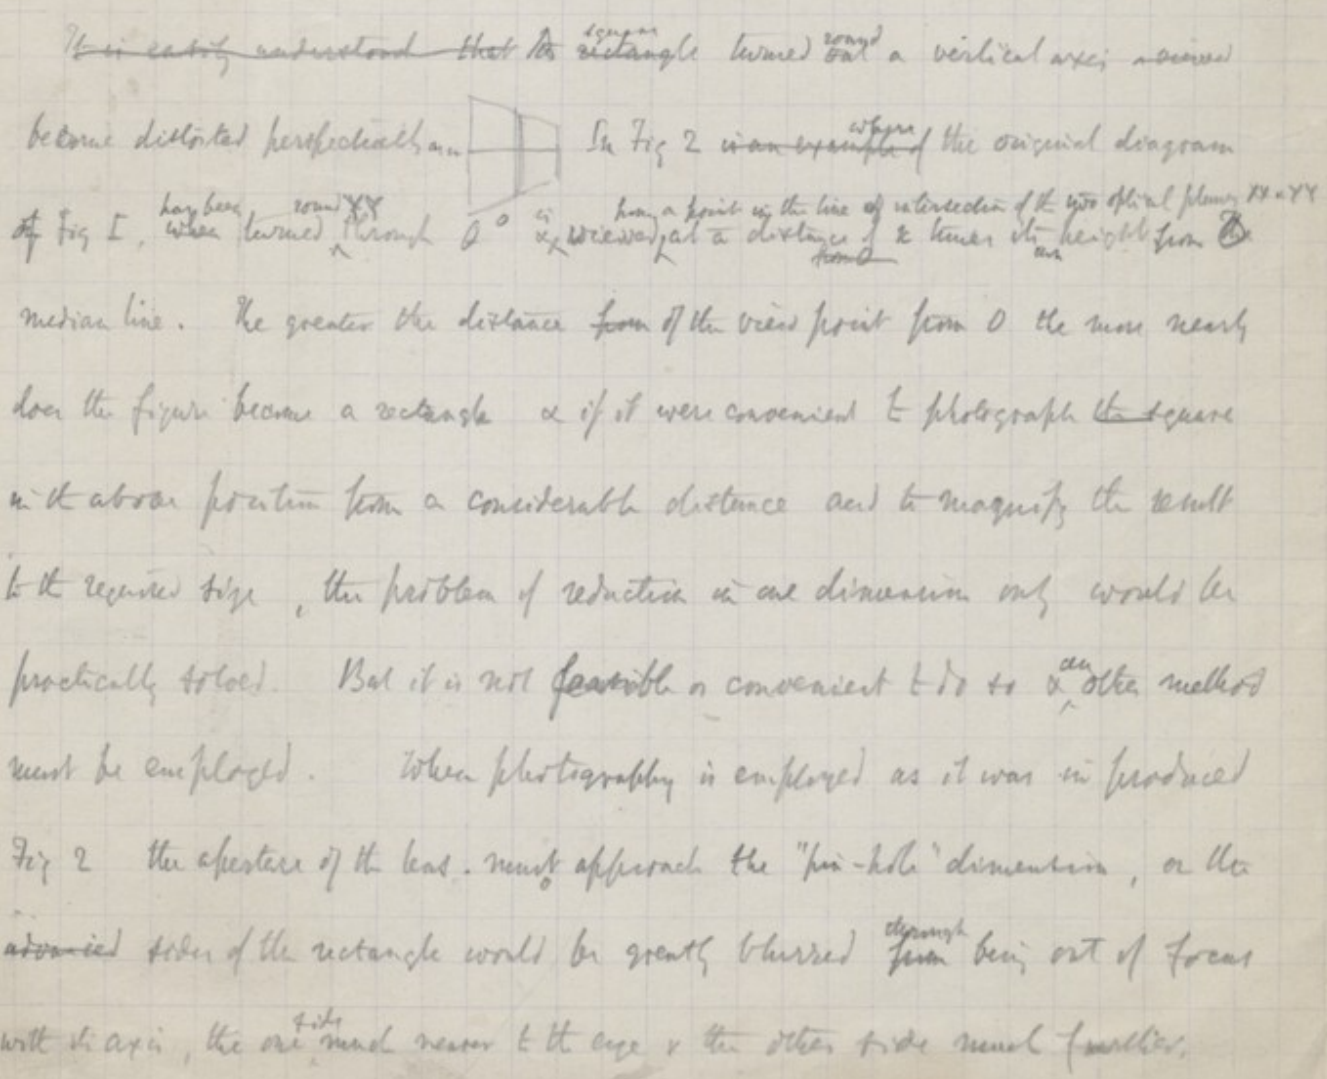 It is easily understood that the rectangle square turned out round a vertical axis viewed
become distorted perspectively as in In Fig 2 is an example of where the original diagram
of Fig I, when has been turned round XY through θ° is & viewed from a point in the line of intersection of the two optical planes at a distance of x times its own height from the
from O
median line. The greater the distance from of the view point from O the more nearly
does the figure become a rectangle & if it were convenient to photograph the square
in the above position from a considerable distance and to magnify the result
to the required size, the problem of reduction in one dimension only would be
practically solved. But it is not feasible or convenient to do so & another method
must be employed. When photography is employed as it was in produced
Fig 2 the aperture of the lens must approach the "pin-hole" dimension, or the
sides of the rectangle would be greatly blurred from through being out of focus
with its axis, the one side much nearer to the eye & the other side much further.